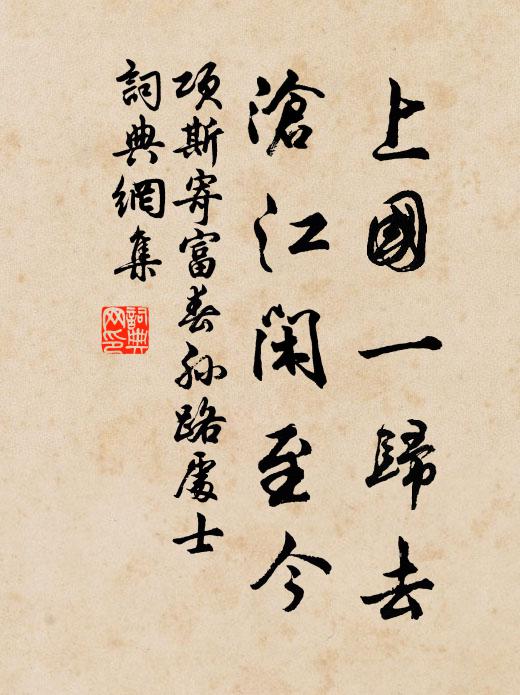 上國一歸去
滄江閑至今
項斯寄富春孫路處士
詞典網集
詞典网印